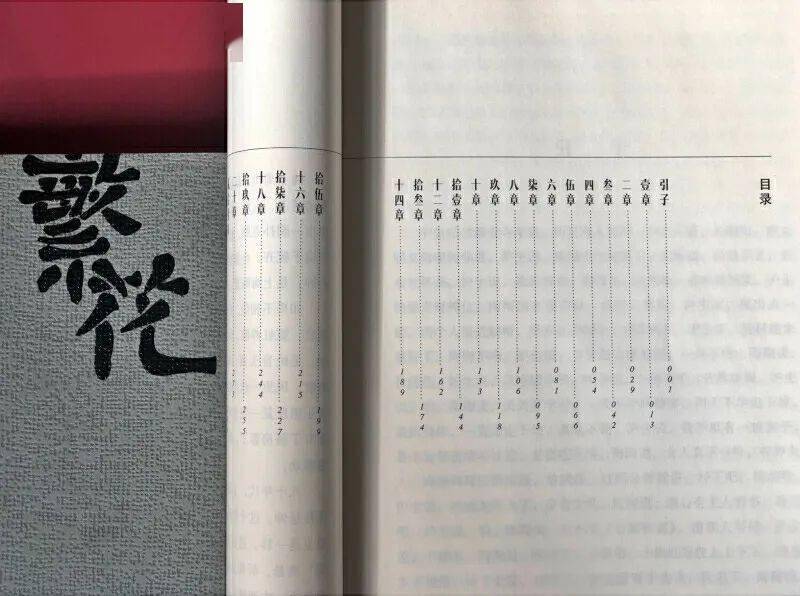 繁花
目录
引子 001
壹章 013
二章 029
叁章 042
四章 054
伍章 066
六章 081
柒章 095
八章 106
玖章 118
十章 133
拾壹章 144
十二章 162
拾叁章 174
十四章 189
拾伍章 199
十六章 215
拾柒章 227
十八章 244
拾玖章 255
二十章 273